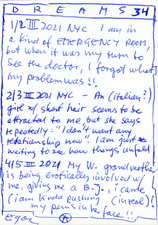 DREAMS 34
1/2 III 2021 NYC I am in
a kind of EMERGENCY ROOM,
but when it was my turn to
see the doctor, I forgot what
my problem was!!
2/3 III 2021 NYC - An (Italian?)
girl w/ short hair seems to be
attracted to me, but she says
repeatedly: "I don't want any
relationship now". I am just
waiting to see how things unfold
4/5 III 2021 My W. grandmother
is being erotically involved w/
me, giving me a B.J., I came
(in real)!
(I am kinda pushing
my penis in her face!!)